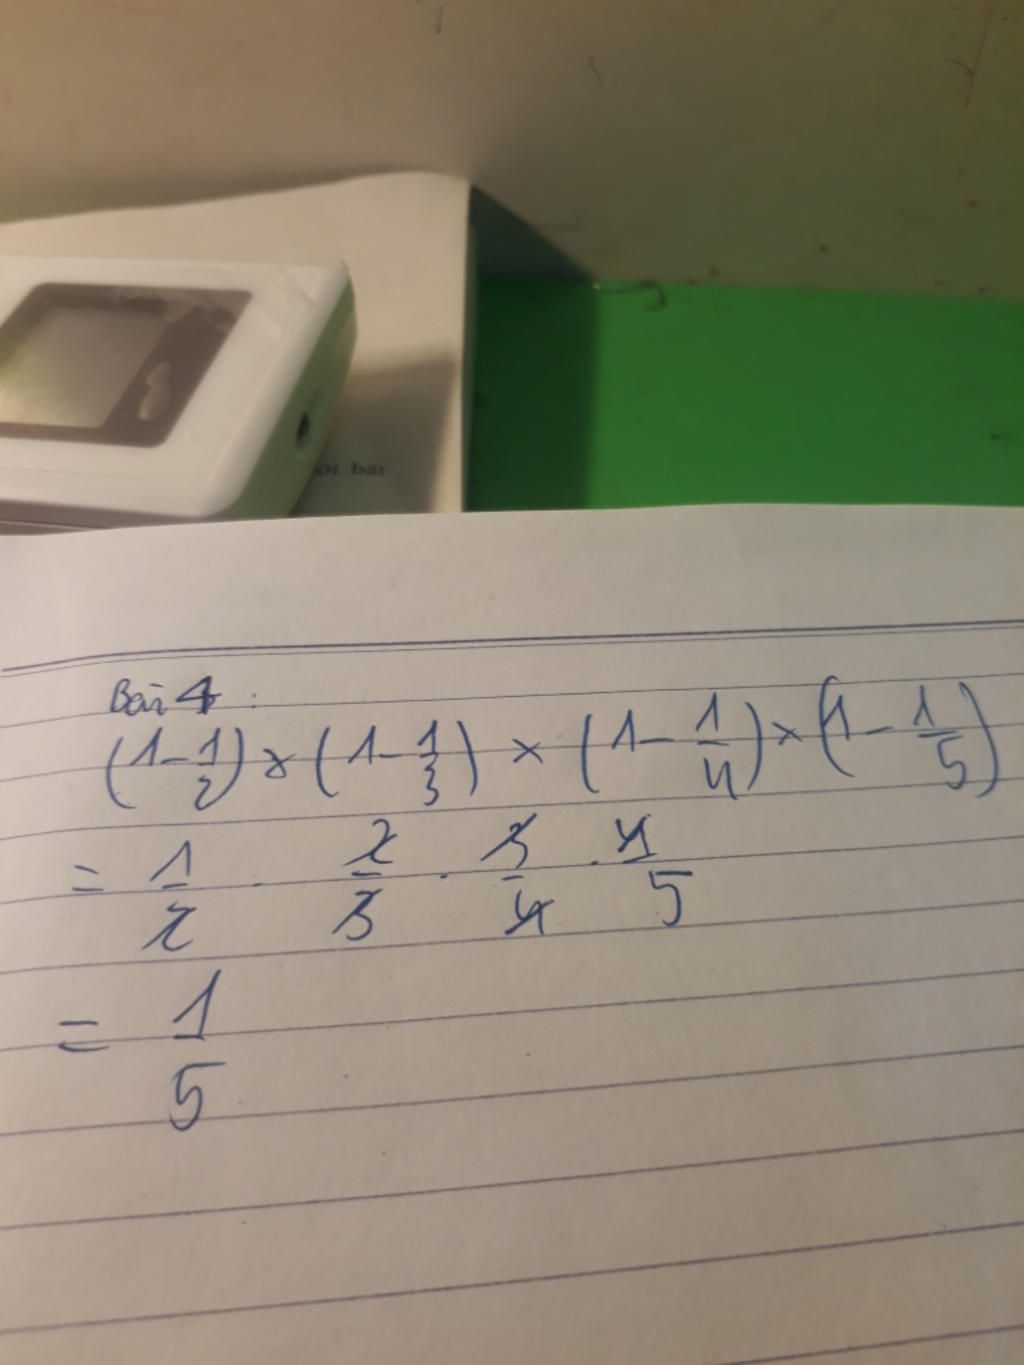 ời bài
Bài 4:
(1 - 1/2) x (1 - 1/3) x (1 - 1/4) x (1 - 1/5)
= 1/2 . 2/3 . 3/4 . 4/5
= 1/5